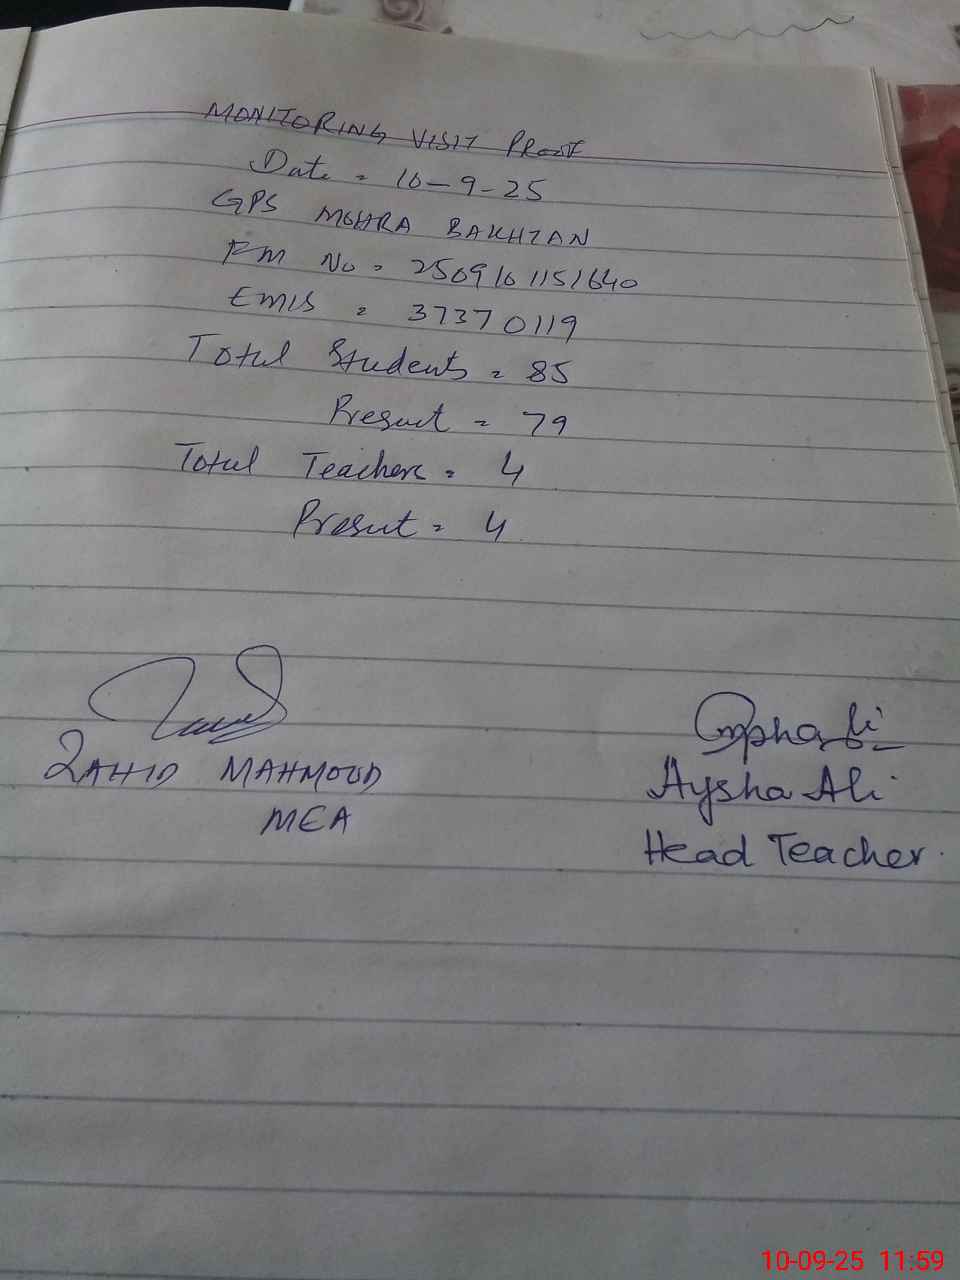 MONITORING VISIT PROOF
Date = 10-9-25
GPS MOHRA BAKHTAN
FM No = 2509101151640
EMIS = 37370119
Total Students = 85
Present = 79
Total Teachers = 4
Present = 4
ZAHID MAHMOOD
MEA
Aysha Ali
Head Teacher.
10-09-25 11:59